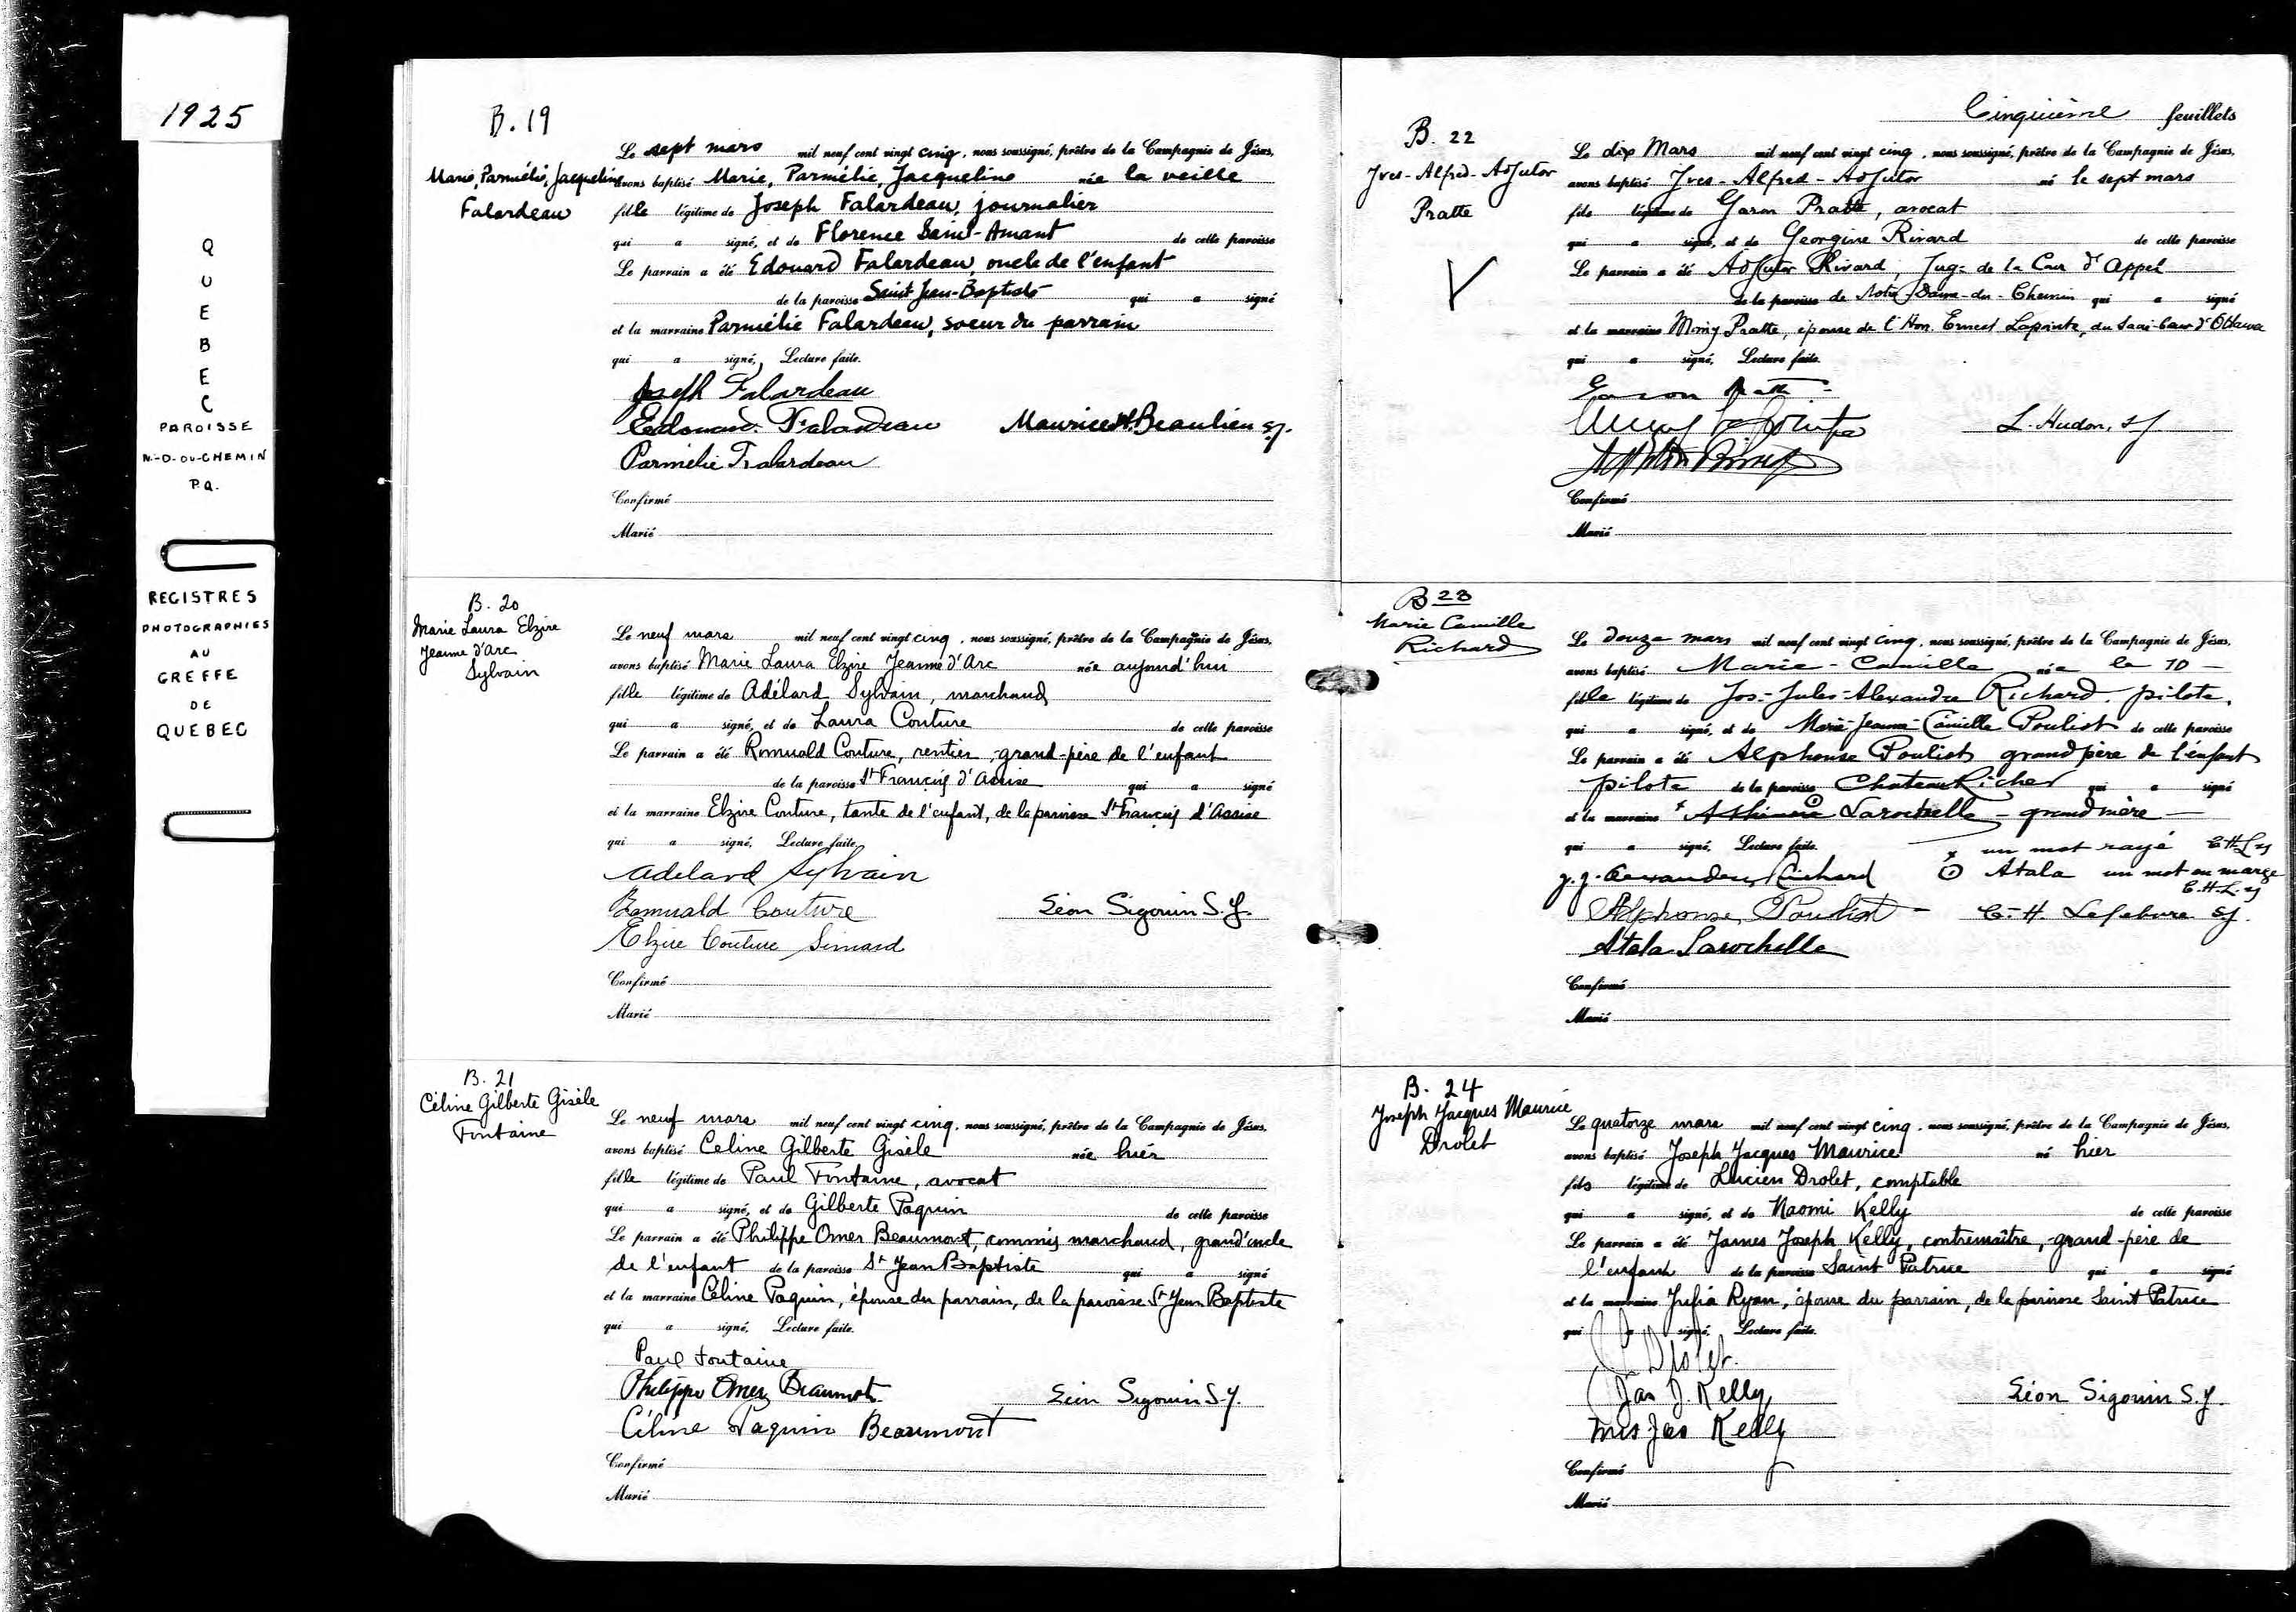 1925
QUEBEC
PAROISSE
N.-D.-DU-CHEMIN
P.Q.
REGISTRES
PHOTOGRAPHIES
AU
GREFFE
DE
QUEBEC
B. 19
Marie, Parmélie, Jacqueline
Falardeau
Le sept mars mil neuf cent vingt cinq, nous soussigné, prêtre de la Compagnie de Jésus,
avons baptisé Marie, Parmélie, Jacqueline née la veille
fille légitime de Joseph Falardeau, journalier
qui a signé, et de Florence Saint-Amant de cette paroisse
Le parrain a été Edouard Falardeau, oncle de l'enfant
de la paroisse Saint Jean-Baptiste qui a signé
et la marraine Parmélie Falardeau, soeur du parrain
qui a signé, Lecture faite.
Joseph Falardeau
Edouard Falardeau Maurice H. Beaulieu sj.
Parmélie Falardeau
Confirmé
Marié
B. 20
Marie Laura Elzire
Jeanne d'Arc
Sylvain
Le neuf mars mil neuf cent vingt cinq, nous soussigné, prêtre de la Compagnie de Jésus,
avons baptisé Marie Laura Elzire Jeanne d'Arc née aujourd'hui
fille légitime de Adélard Sylvain, marchand
qui a signé, et de Laura Couture de cette paroisse
Le parrain a été Romuald Couture, rentier, grand-père de l'enfant
de la paroisse St François d'Assise qui a signé
et la marraine Elzire Couture, tante de l'enfant, de la paroisse St François d'Assise
qui a signé, Lecture faite.
Adelard Sylvain
Romuald Couture Léon Sigouin S.J.
Elzire Couture Simard
Confirmé
Marié
B. 21
Céline Gilberte Gisèle
Fontaine
Le neuf mars mil neuf cent vingt cinq, nous soussigné, prêtre de la Compagnie de Jésus,
avons baptisé Céline Gilberte Gisèle née hier
fille légitime de Paul Fontaine, avocat
qui a signé, et de Gilberte Paquin de cette paroisse
Le parrain a été Philippe Omer Beaumont, commis marchand, grand'oncle
de l'enfant de la paroisse St Jean Baptiste qui a signé
et la marraine Céline Paquin, épouse du parrain, de la paroisse St Jean Baptiste
qui a signé, Lecture faite.
Paul Fontaine
Philippe Omer Beaumont Léon Sigouin S.J.
Céline Paquin Beaumont
Confirmé
Marié
Cinquième feuillets
B. 22
Yves-Alfred-Adjutor
Pratte
Le dix Mars mil neuf cent vingt cinq, nous soussigné, prêtre de la Compagnie de Jésus,
avons baptisé Yves-Alfred-Adjutor né le sept mars
fils légitime de Garon Pratte, avocat
qui a signé, et de Georgine Rivard de cette paroisse
Le parrain a été Adjutor Rivard, Juge de la Cour d'Appel
de la paroisse de Notre-Dame-du-Chemin qui a signé
et la marraine Pratte, épouse de l'Hon. Ernest Lapointe, du Sacré-Coeur d'Ottawa
qui a signé, Lecture faite.
Garon Pratte
Lapointe L. Hudon, sj
Adjutor Rivard
Confirmé
Marié
B 23
Marie Camille
Richard
Le douze mars mil neuf cent vingt cinq, nous soussigné, prêtre de la Compagnie de Jésus,
avons baptisé Marie-Camille née le 10
fille légitime de Jos-Jules-Alexandre Richard, pilote,
qui a signé, et de Marie-Jeanne-Camille Pouliot de cette paroisse
Le parrain a été Alphonse Pouliot grand père de l'enfant
pilote de la paroisse Chateau Richer qui a signé
et la marraine Larochelle - grand mère
qui a signé, Lecture faite. x un mot rayé C.H.L. sj
J.J. Alexandre Richard ⊙ Atala un mot en marge
C.H.L. sj
Alphonse Pouliot C.-H. Lefebvre sj.
Atala Larochelle
Confirmé
Marié
B. 24
Joseph Jacques Maurice
Drolet
Le quatorze mars mil neuf cent vingt cinq, nous soussigné, prêtre de la Compagnie de Jésus,
avons baptisé Joseph Jacques Maurice né hier
fils légitime de Lucien Drolet, comptable
qui a signé, et de Naomi Kelly de cette paroisse
Le parrain a été James Joseph Kelly, contremaître, grand-père de
l'enfant de la paroisse Saint Patrice qui a signé
et la marraine Julia Ryan, épouse du parrain, de la paroisse Saint Patrice
qui a signé, Lecture faite.
L. Drolet.
Jas J. Kelly Léon Sigouin S.J.
Mrs Jas Kelly
Confirmé
Marié